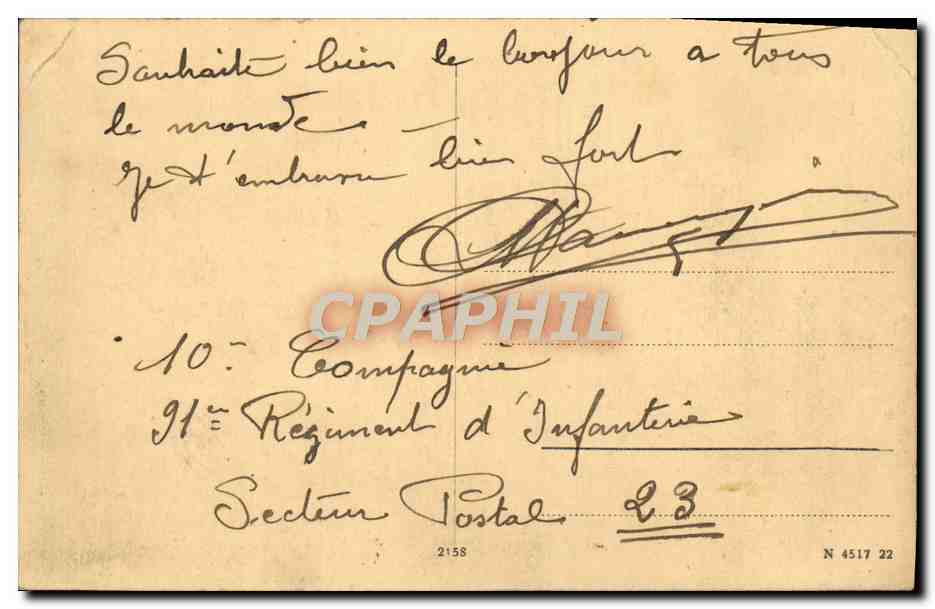 Souhaite bien le bonjour a tous
le monde
Je t'embrasse bien fort
CPAPHIL
10e Compagnie
91em Régiment d'Infanterie
Secteur Postal 23
2158
N 4517 22